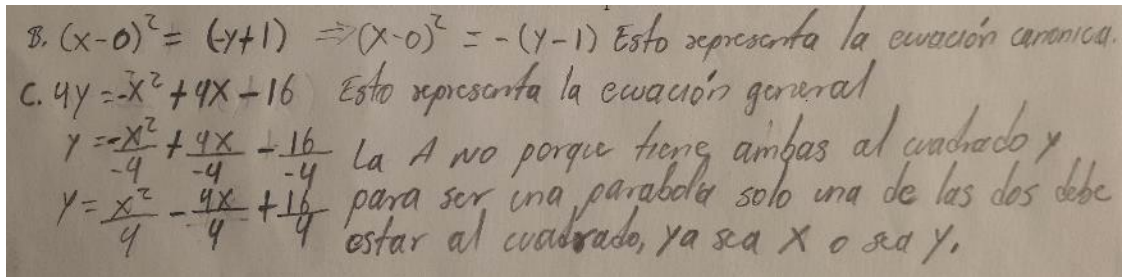 B. (x-0)² = (-y+1) ⇒ (x-0)² = -(y-1) Esto representa la ecuación canonica.
C. 4y = -x² + 4x - 16 Esto representa la ecuación general
y = -x²/-4 + 4x/-4 - 16/-4 La A no porque tiene ambas al cuadrado y
y = x²/4 - 4x/4 + 16/4 para ser una parabola solo una de las dos debe
estar al cuadrado, ya sea X o sea Y.